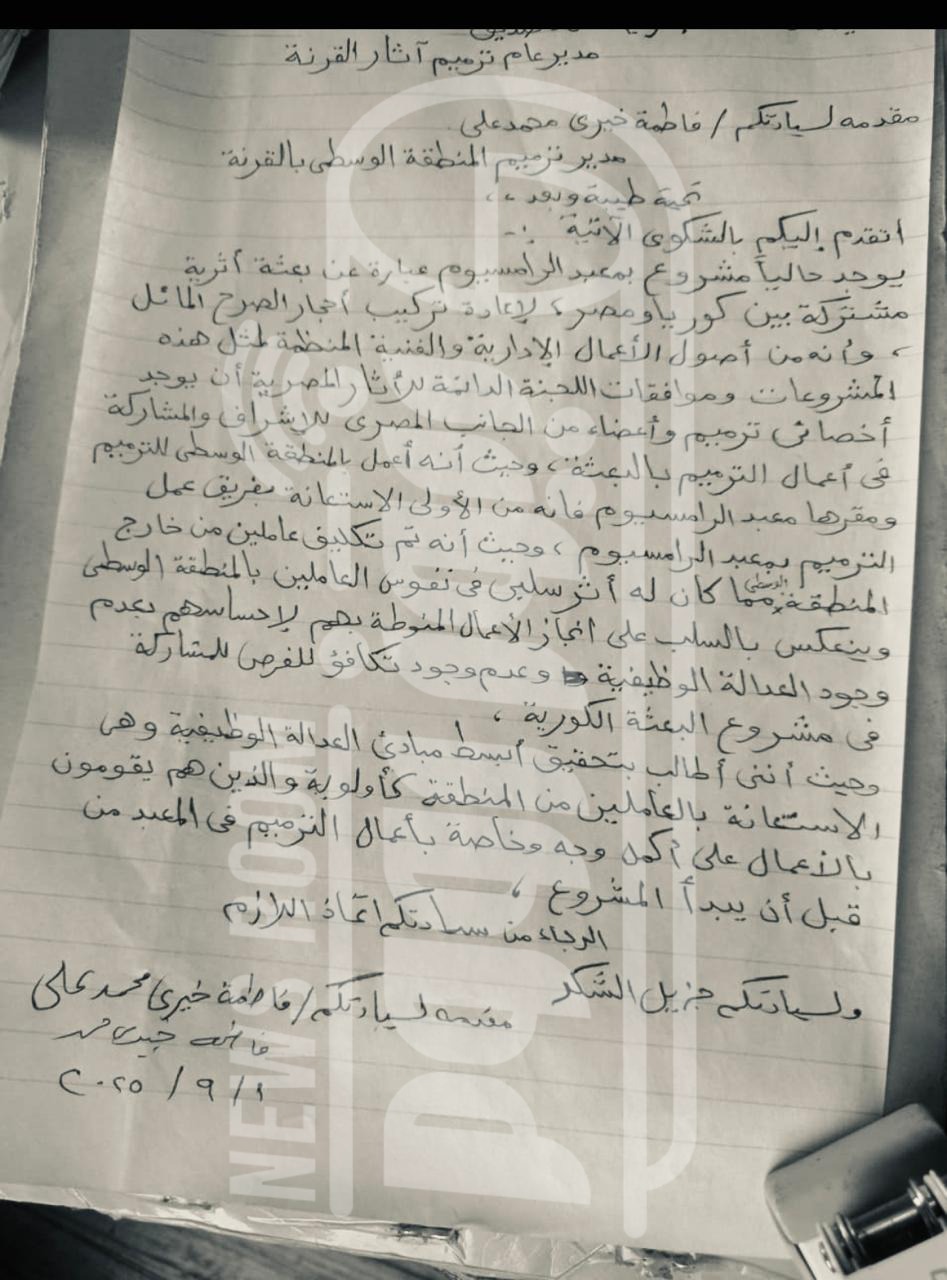 مدير عام ترميم آثار القرنة
مقدمه لسيادتكم / فاطمة خيرى محمد على
مدير ترميم المنطقة الوسطى بالقرنة
تحية طيبة وبعد ،،
أتقدم إليكم بالشكوى الآتية :-
يوجد حالياً مشروع بمعبد الرامسيوم عبارة عن بعثة أثرية
مشتركة بين كوريا ومصر ، لإعادة تركيب أحجار الصرح المائل
، وأنه من أصول الأعمال الإدارية والفنية المنظمة لمثل هذه
المشروعات وموافقات اللجنة الدائمة للآثار المصرية أن يوجد
أخصائى ترميم وأعضاء من الجانب المصرى للإشراف والمشاركة
فى أعمال الترميم بالبعثة ، وحيث أنه أعمل بالمنطقة الوسطى للترميم
ومقرها معبد الرامسيوم فانه من الأولى الاستعانة بفريق عمل
الترميم بمعبد الرامسيوم ، وحيث أنه تم تكليف عاملين من خارج
المنطقة الوسطى مما كان له أثر سلبى فى نفوس العاملين بالمنطقة الوسطى
وينعكس بالسلب على انجاز الأعمال المنوطة بهم لإحساسهم بعدم
وجود العدالة الوظيفية وعدم وجود تكافؤ للفرص للمشاركة
فى مشروع البعثة الكورية ،
وحيث أننى أطالب بتحقيق أبسط مبادئ العدالة الوظيفية وهى
الاستعانة بالعاملين من المنطقة كأولوية والذين هم يقومون
بالأعمال على أكمل وجه وخاصة بأعمال الترميم فى المعبد من
قبل أن يبدأ المشروع ،
الرجاء من سيادتكم اتخاذ اللازم
ولسيادتكم جزيل الشكر
مقدمه لسيادتكم / فاطمة خيرى محمد على
٢٠٢٥ / ٩ / ١
NEWS ROOM